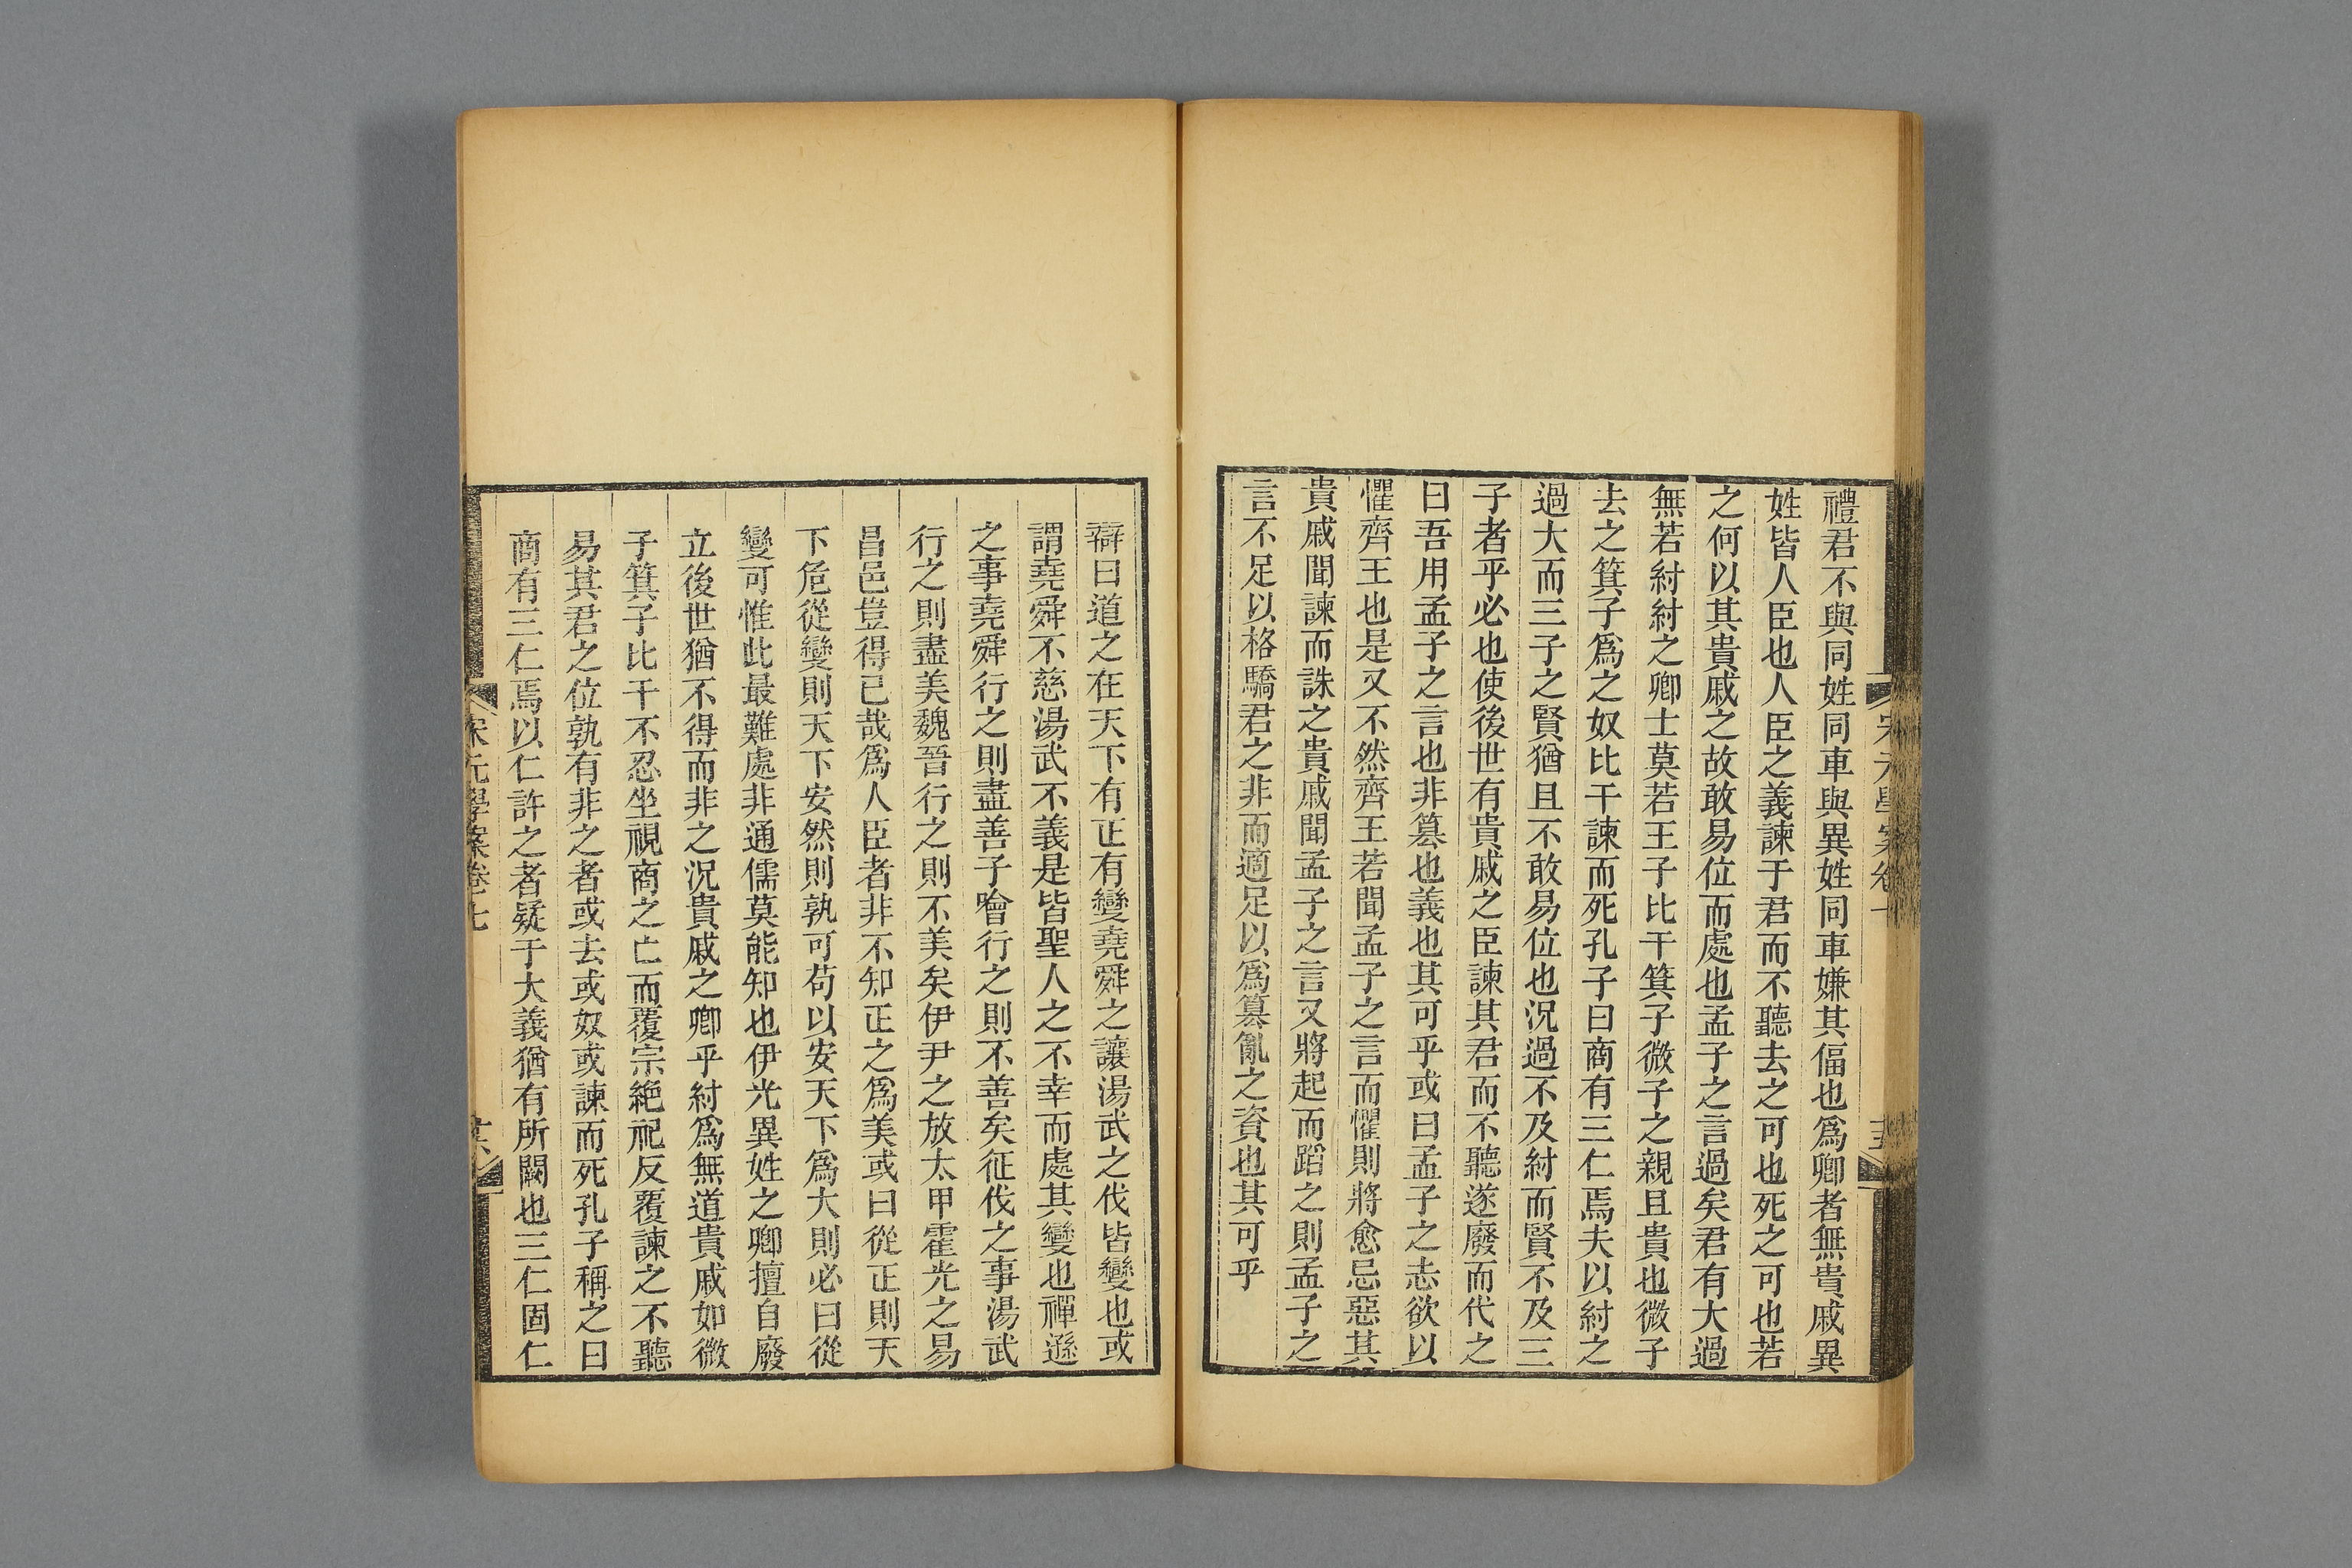 禮君不與同姓同車與異姓同車嫌其偪也爲卿者無貴戚異
姓皆人臣也人臣之義諫于君而不聽去之可也死之可也若
之何以其貴戚之故敢易位而處也孟子之言過矣君有大過
無若紂紂之卿士莫若王子比干箕子微子之親且貴也微子
去之箕子爲之奴比干諫而死孔子曰商有三仁焉夫以紂之
過大而三子之賢猶且不敢易位也況過不及紂而賢不及三
子者乎必也使後世有貴戚之臣諫其君而不聽遂廢而代之
曰吾用孟子之言也非篡也義也其可乎或曰孟子之志欲以
懼齊王也是又不然齊王若聞孟子之言而懼則將愈忌惡其
貴戚聞諫而誅之貴戚聞孟子之言又將起而蹈之則孟子之
言不足以格驕君之非而適足以爲篡亂之資也其可乎
辯曰道之在天下有正有變堯舜之讓湯武之伐皆變也或
謂堯舜不慈湯武不義是皆聖人之不幸而處其變也禪遜
之事堯舜行之則盡善子噲行之則不善矣征伐之事湯武
行之則盡美魏晉行之則不美矣伊尹之放太甲霍光之易
昌邑豈得已哉爲人臣者非不知正之爲美或曰從正則天
下危從變則天下安然則孰可苟以安天下爲大則必曰從
變可惟此最難處非通儒莫能知也伊光異姓之卿擅自廢
立後世猶不得而非之況貴戚之卿乎紂爲無道貴戚如微
子箕子比干不忍坐視商之亡而覆宗絶祀反覆諫之不聽
易其君之位孰有非之者或去或奴或諫而死孔子稱之曰
商有三仁焉以仁許之者疑于大義猶有所闕也三仁固仁
宋元學案卷七